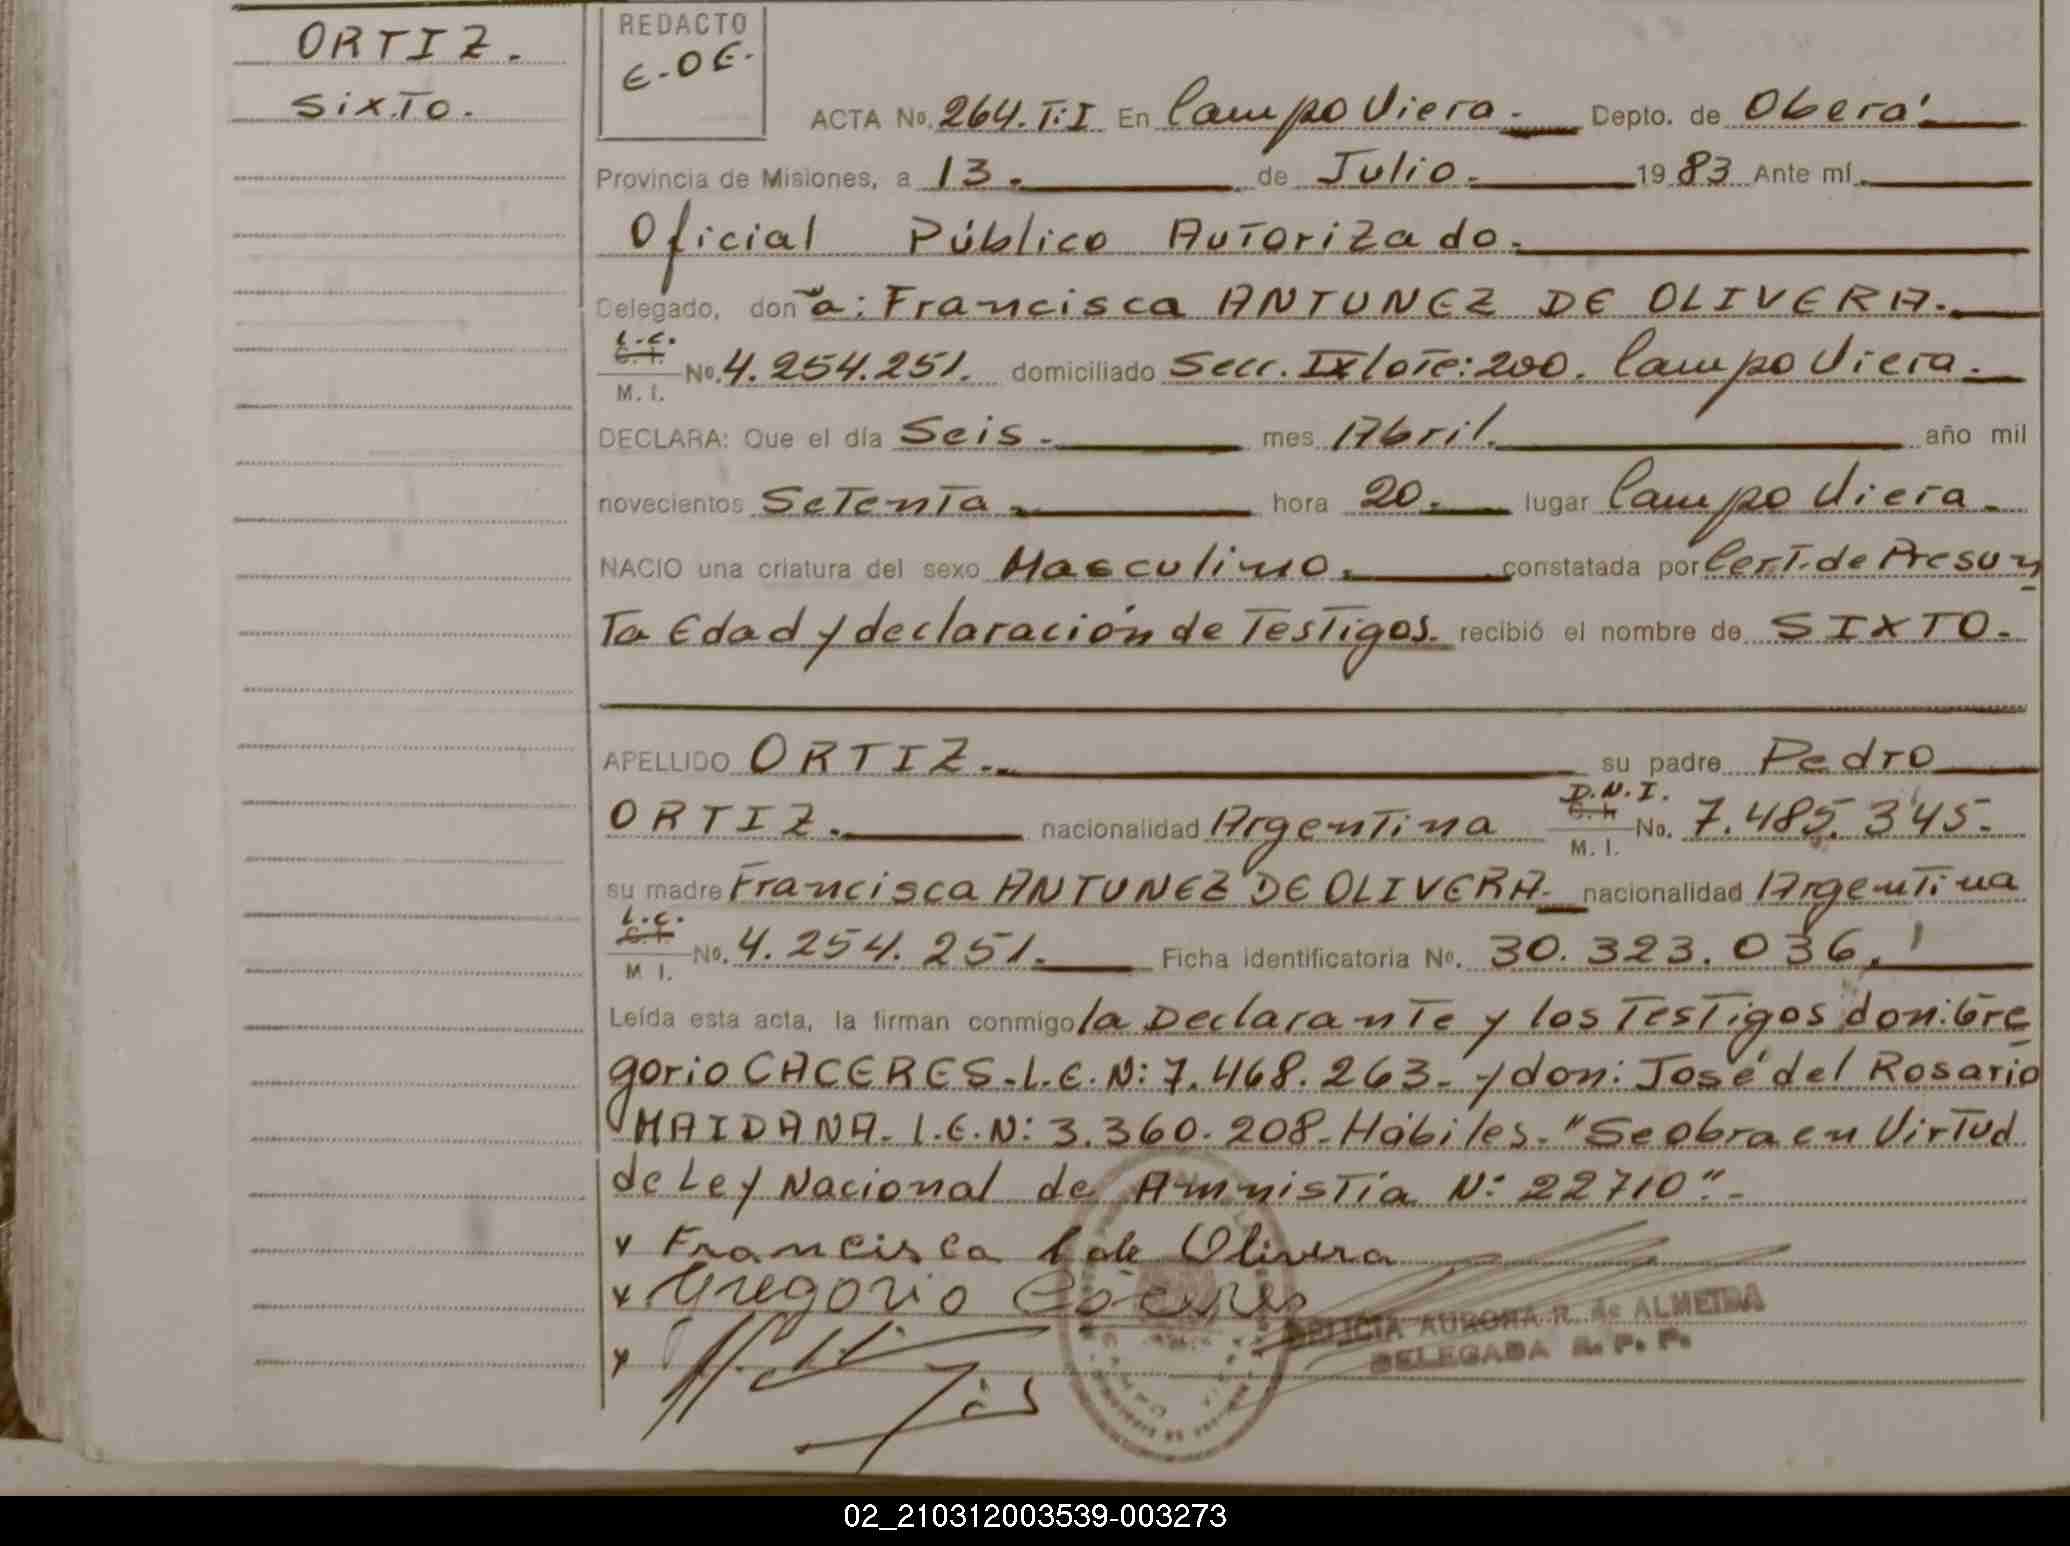 ORTIZ.
SixTo.
REDACTO
E.OE.
ACTA No. 264.T:I En Campo Viera. Depto. de Oberá
Provincia de Misiones, a 13. de Julio. 1983 Ante mí
Oficial Público Autorizado.
Delegado, don a: Francisca ANTUNEZ DE OLIVERA.
L.C.
C. I.
M. I.
No. 4.254.251. domiciliado Secc. IX lote: 200. Campo Viera.
DECLARA: Que el día Seis. mes Abril. año mil
novecientos Setenta. hora 20. lugar Campo Viera.
NACIO una criatura del sexo Masculino. constatada por Cert. de Presun
ta Edad y declaración de Testigos. recibió el nombre de SIXTO.
APELLIDO ORTIZ. su padre Pedro
ORTIZ. nacionalidad Argentina D.N.I. C. I. M. I. No. 7.485.345.
su madre Francisca ANTUNEZ DE OLIVERA. nacionalidad Argentina
L.C.
C. I.
M I.
No. 4.254.251. Ficha identificatoria No. 30.323.036.
Leída esta acta, la firman conmigo la Declarante y los Testigos don: Gre
gorio CACERES. L.E.N: 7.468.263. y don: José del Rosario
MAIDANA. L.E.N: 3.360.208. Hábiles. "Se obra en Virtud
de Ley Nacional de Amnistía N: 22710".
x Francisca de Olivera
x Gregorio Cáceres
x
AURORA R. de ALMEIDA
DELEGADA R. P. P.
02_210312003539-003273